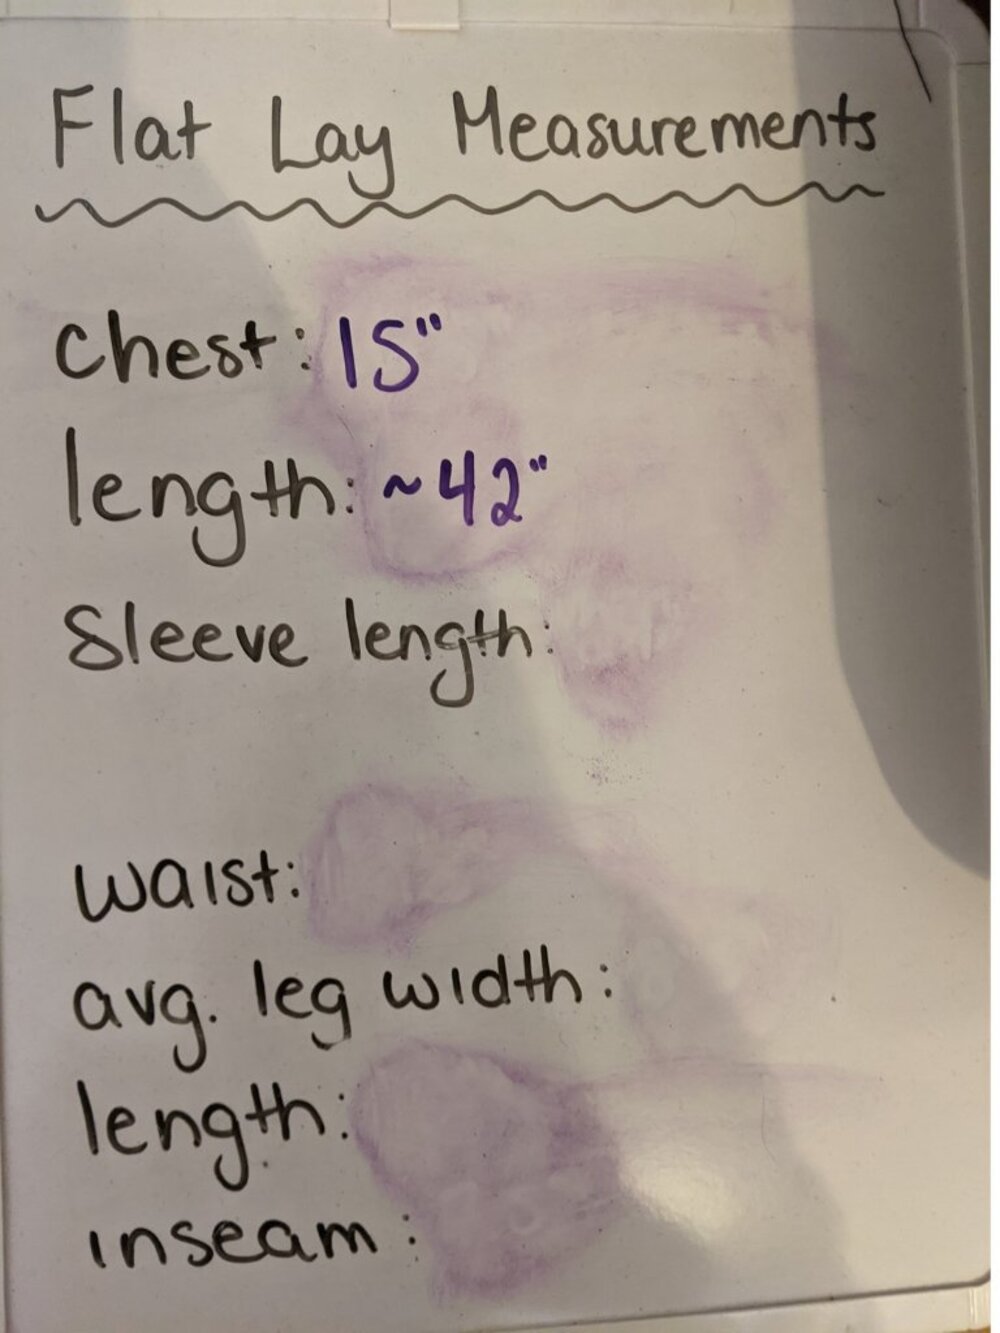 Flat Lay Measurements
chest: 15"
length: ~42"
Sleeve length:
waist:
avg. leg width:
length:
inseam: